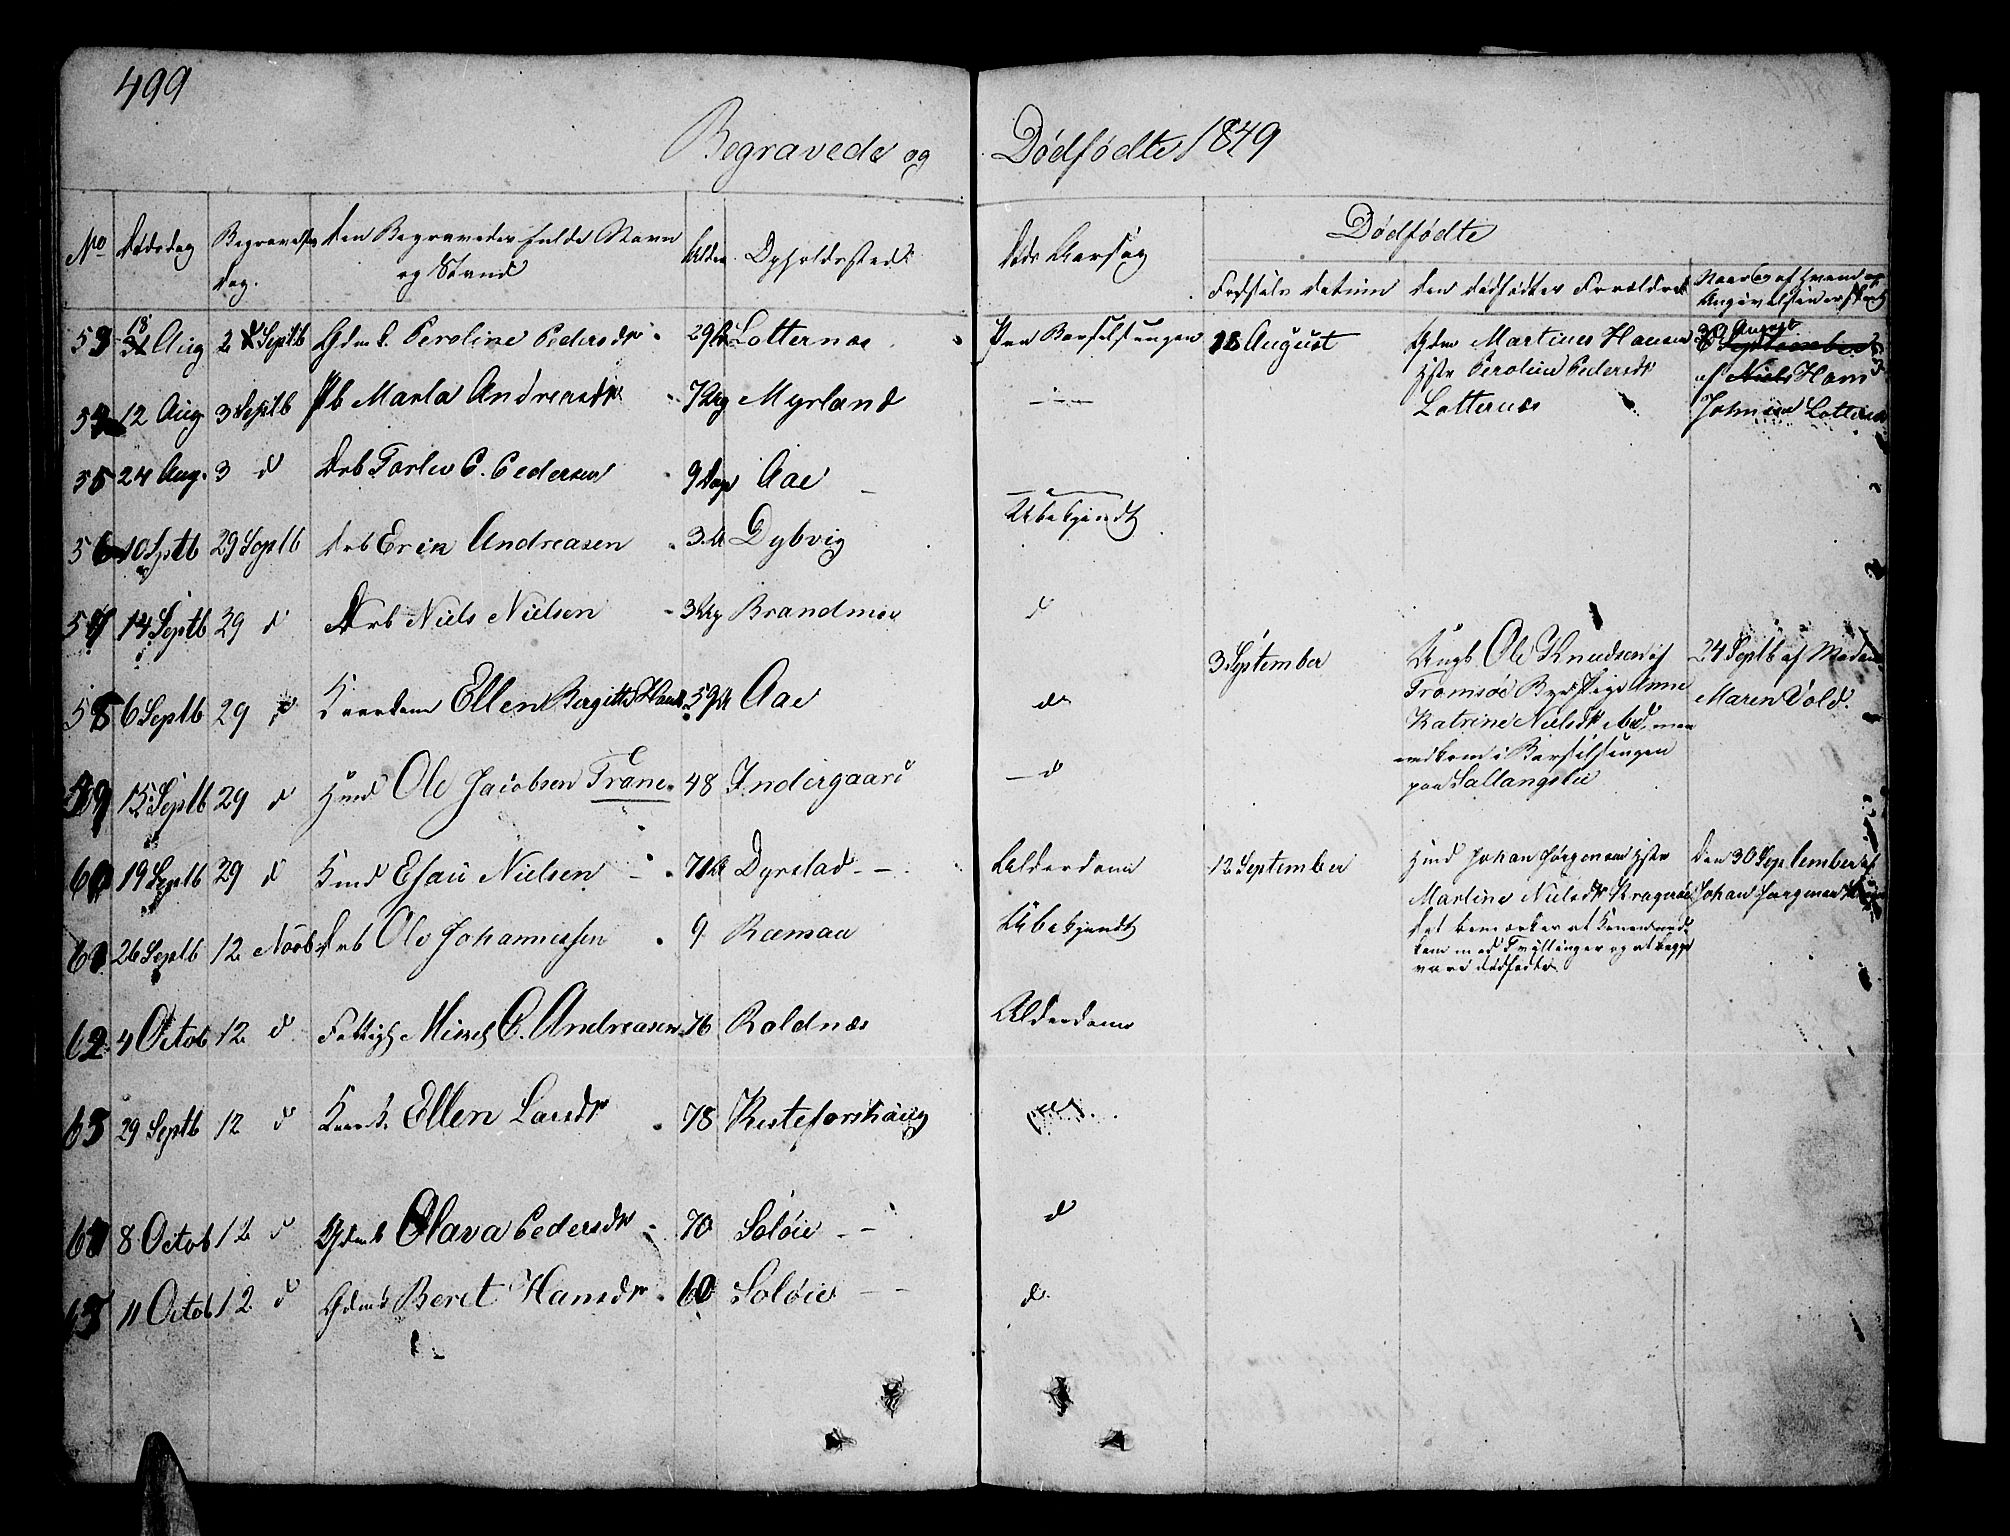 499
Begravede og Dødfødte 1849
No Dødsdag Begravelses Dag. Den Begravedes fulde Navn og Stand Alder Opholdssted Døds Aarsag
Dødfødte
Fødsels datum Den dødfødtes Forældre Naar og af hvem Angivelsen er skeet
53 18 Aug 2 Septb Gdmk Peroline Pedersdr 29 Lotternæs Paa Barselsengen
18 August Gdm Martines Hansen
Hstr Peroline Pedersdr
Lotternæs
30 August
September
af Niels Hans
Johnsen Lotternæs
54 12 Aug 3 Septb Pb Marta Andreasdr 7 Ug Myrland — " —
55 24 Aug. 3 d Drb Tarlev P. Pedersen 9 Dage Aae —
56 10 Septb 29 Septb Drb Erik Andreasen 3 Dybvig Ubekjendt
57 14 Septb 29 d Drb Niels Nielsen 3 Ug Brandmoe d
58 6 Septb 29 d Ellen Bergitte Hansd 59 Aar Aae d
3 September Ungk. Ole Knudsen af
Tromsøe By Pige Anne
Katrine Nielsdr
nedkom i Barselsengen
paa Sallangslie
24 Septb af Madam
Maren Vold.
59 15 Septb 29 d Hmd Ole Jacobsen Trane 48 Indergaard — d
60 19 Septb 29 d Esau Nielsen 71 Dyrstad — Alderdom
12 September Hmd Johan Jørgensen Hstr
Martine Nielsdr Kragnæs
Det bemærkes at Konen ned-
kom med Tvillinger og at begge
vare dødfødte
Den 30 September af
Johan Jørgensen
61 26 Septb 12 Novb Drb Ole Johannessen 9 Ræmaa Ubekjendt
62 4 Octob 12 d Fattigl Andreasen 76 Roldnæs Alderdom
63 29 Septb 12 d Ellen Larsdr 78 Kesteforshaug
64 8 Octob 12 d Gdmk Olava Pedersdr 70 Soløie — d
65 11 Octob 12 d Gdmk Beret Hansdr 60 Soløie — d